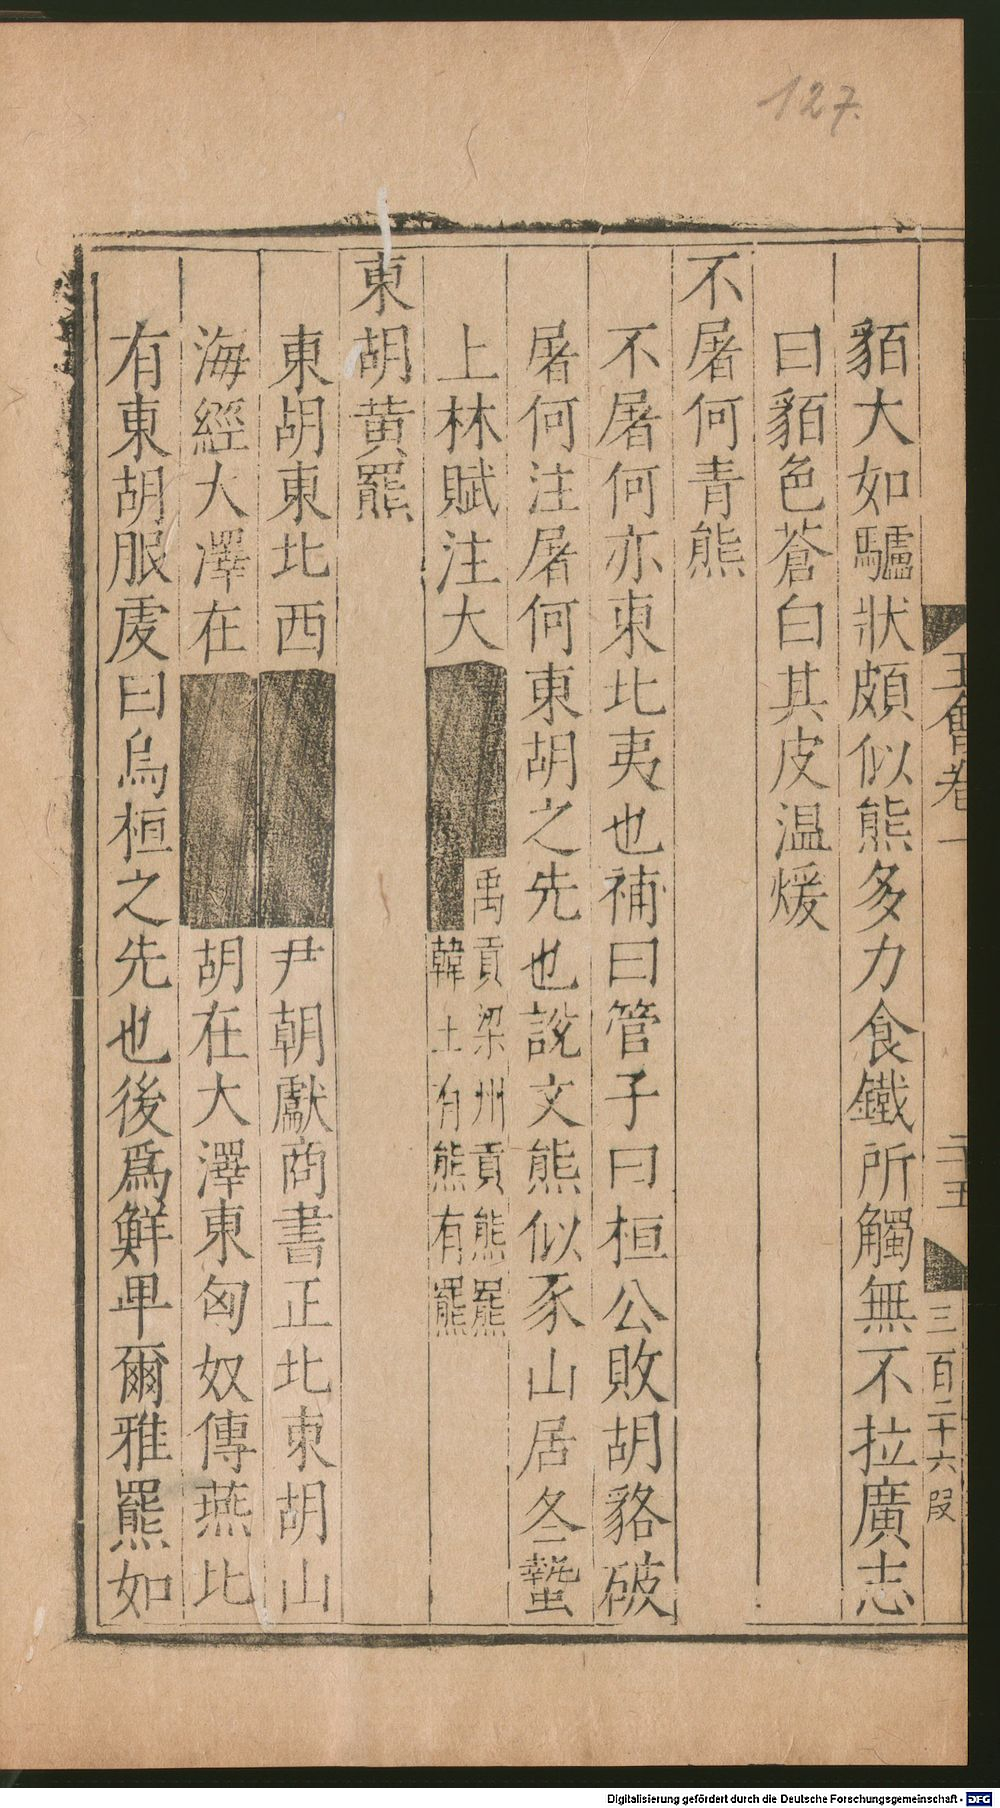 127.
王會卷一
二十五
三百二十六段
貊大如驢狀頗似熊多力食鐵所觸無不拉廣志
曰貊色蒼白其皮温煖
不屠何青熊
不屠何亦東北夷也補曰管子曰桓公敗胡貉破
屠何注屠何東胡之先也說文熊似豕山居冬蟄
上林賦注大
禹貢梁州貢熊羆
韓土有熊有羆
東胡黄羆
東胡東北西
尹朝獻商書正北東胡山
海經大澤在
胡在大澤東匈奴傳燕北
有東胡服䖍曰烏桓之先也後爲鮮卑爾雅羆如
Digitalisierung gefördert durch die Deutsche Forschungsgemeinschaft - DFG